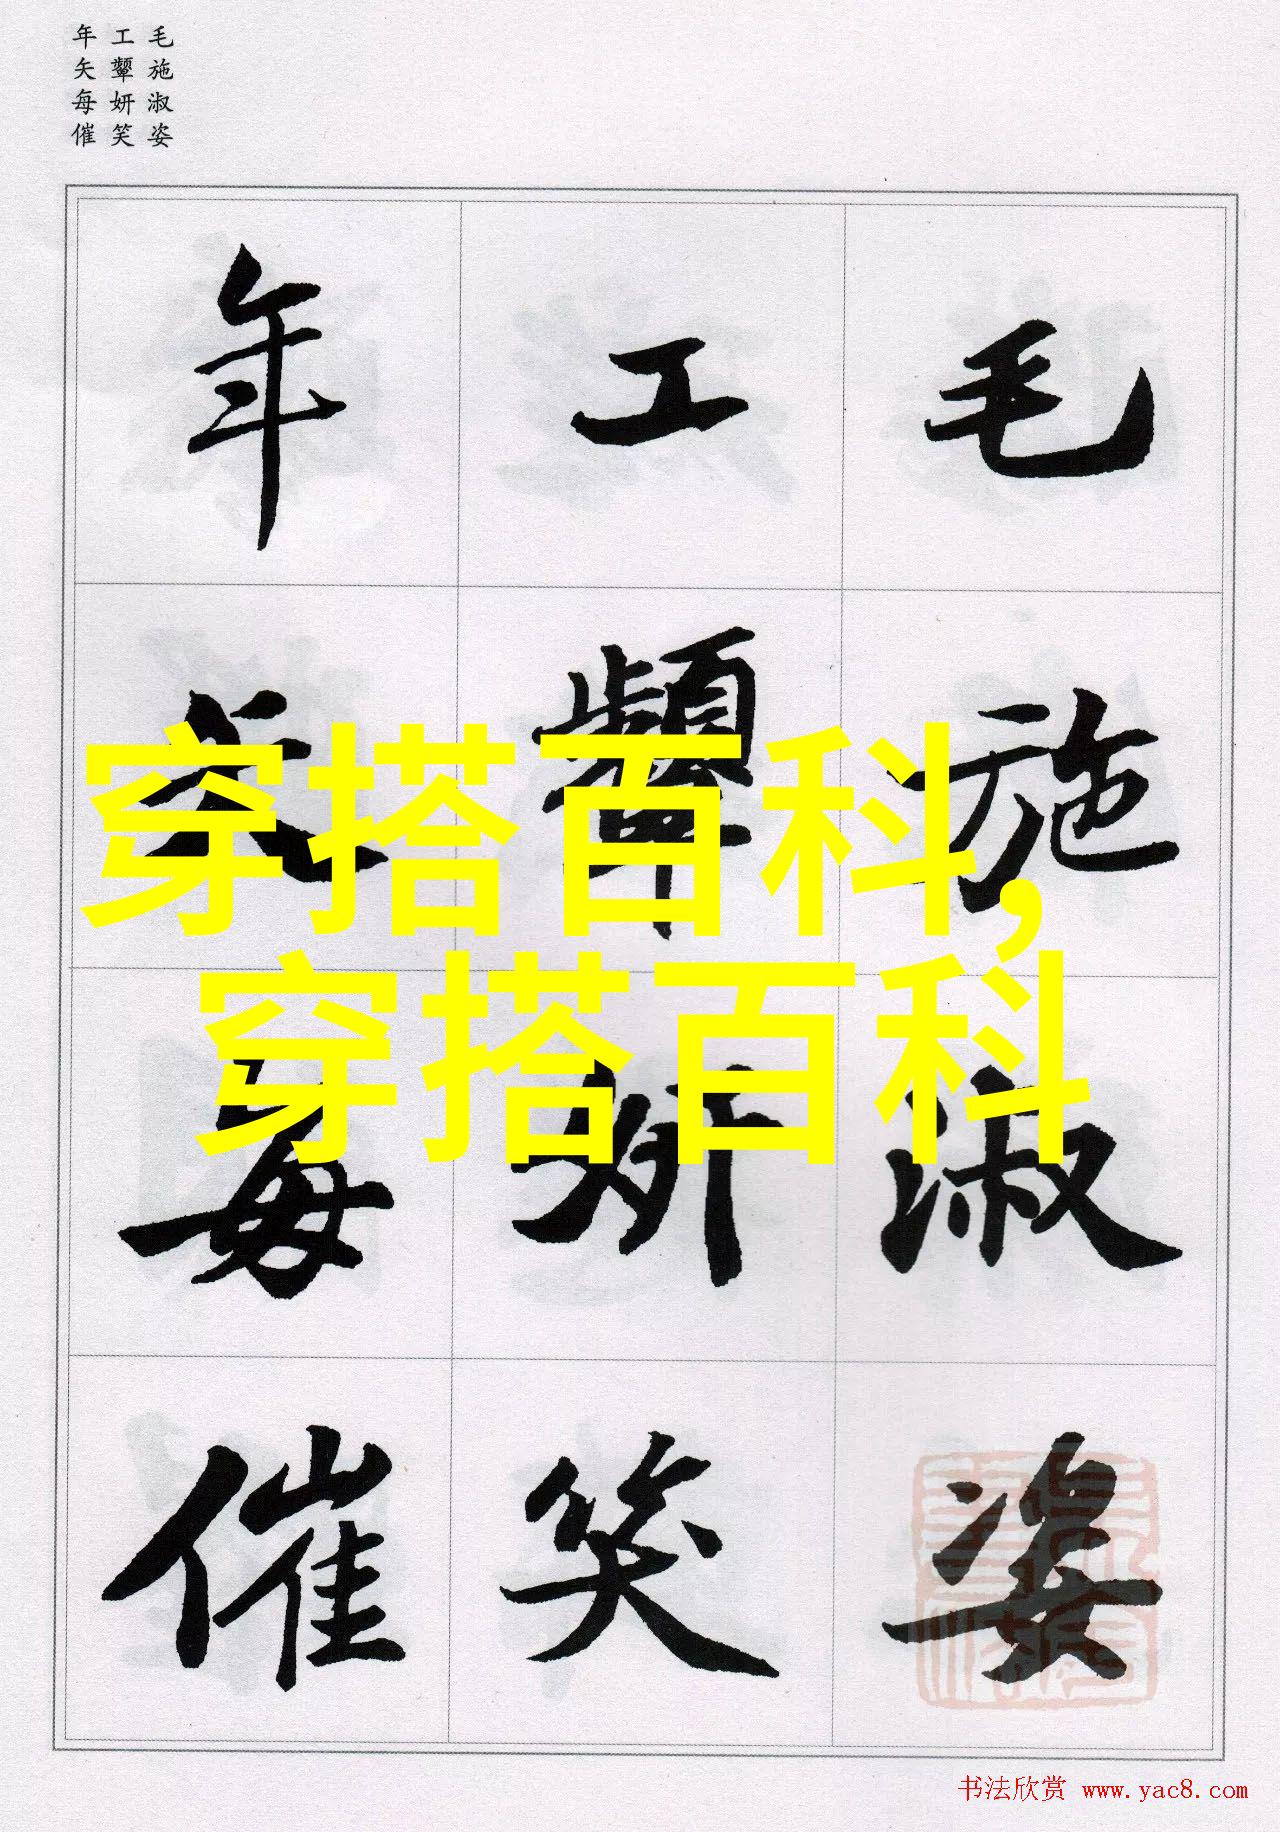 毛施淑姿
工颦妍笑
年矢每催
毛施淑姿
工颦妍笑
年矢每催
穿搭百科,
穿搭百科
书法欣赏 www.yac8.com